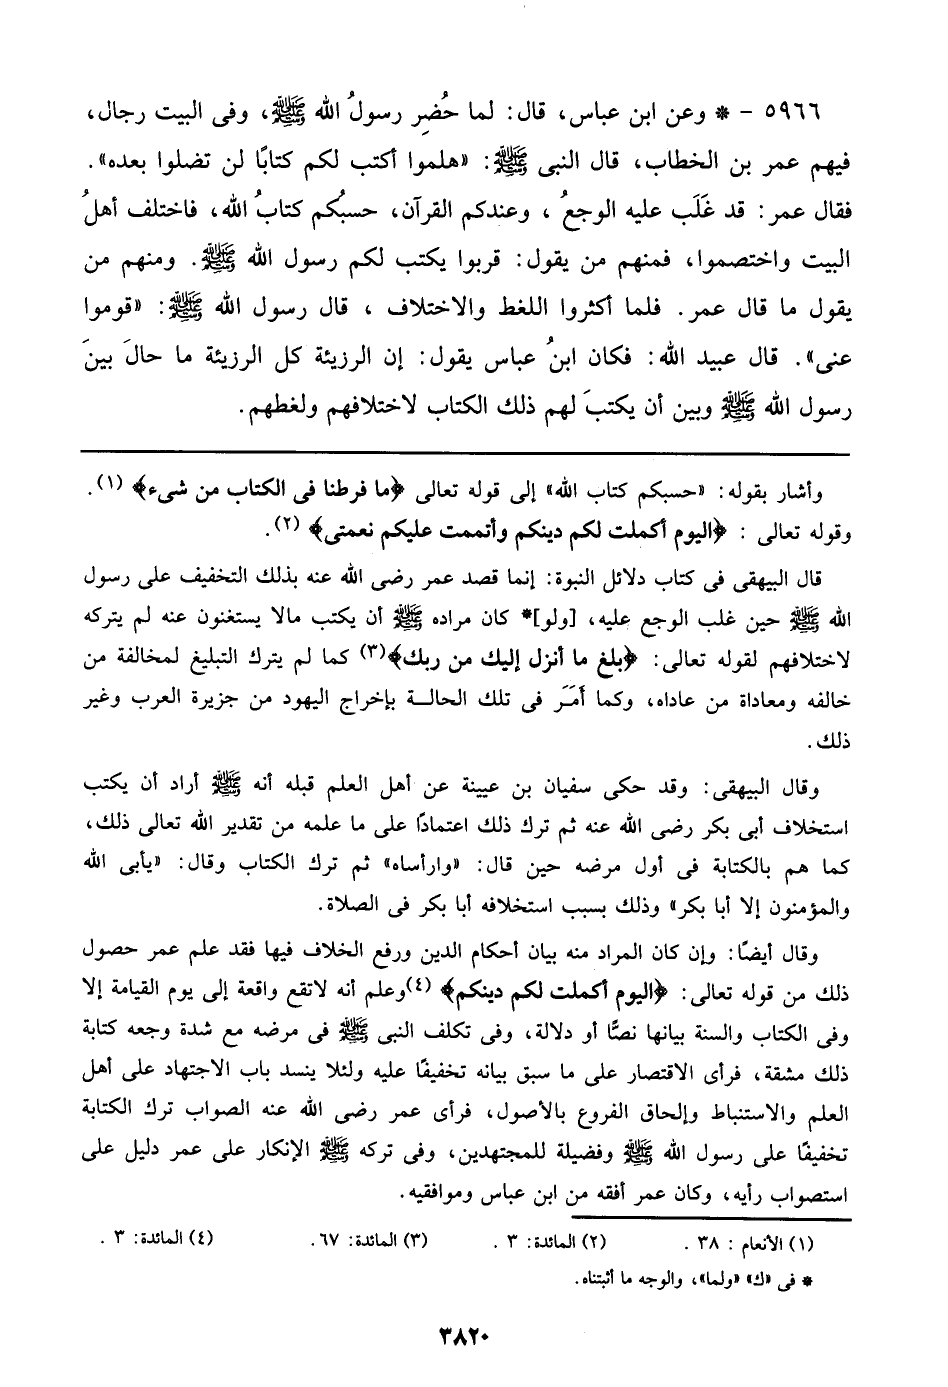 ٥٩٦٦ - * وعن ابن عباس، قال: لما حُضِر رسولُ الله ﷺ، وفى البيت رجال،
فيهم عمر بن الخطاب، قال النبى ﷺ: «هلموا أكتب لكم كتابًا لن تضلوا بعده».
فقال عمر: قد غَلَب عليه الوجعُ ، وعندكم القرآن، حسبُكم كتابُ الله، فاختلف أهلُ
البيت واختصموا، فمنهم من يقول: قربوا يكتب لكم رسول الله ﷺ. ومنهم من
يقول ما قال عمر. فلما أكثروا اللغط والاختلاف ، قال رسول الله ﷺ: «قوموا
عنى». قال عبيد الله: فكان ابنُ عباس يقول: إن الرزيئة كل الرزيئة ما حالَ بينَ
رسول الله ﷺ وبين أن يكتبَ لهم ذلك الكتاب لاختلافهم ولغطهم.
وأشار بقوله: «حسبكم كتاب الله» إلى قوله تعالى ﴿ما فرطنا فى الكتاب من شىء﴾ (١).
وقوله تعالى : ﴿اليوم أكملت لكم دينكم وأتممت عليكم نعمتى﴾ (٢).
قال البيهقى فى كتاب دلائل النبوة: إنما قصد عمر رضى الله عنه بذلك التخفيف على رسول
الله ﷺ حين غلب الوجع عليه، [ولو]* كان مراده ﷺ أن يكتب مالا يستغنون عنه لم يتركه
لاختلافهم لقوله تعالى: ﴿بلغ ما أنزل إليك من ربك﴾(٣) كما لم يترك التبليغ لمخالفة من
خالفه ومعاداة من عاداه، وكما أَمَرَ فى تلك الحالة بإخراج اليهود من جزيرة العرب وغير
ذلك.
وقال البيهقى: وقد حكى سفيان بن عيينة عن أهل العلم قبله أنه ﷺ أراد أن يكتب
استخلاف أبى بكر رضى الله عنه ثم ترك ذلك اعتمادًا على ما علمه من تقدير الله تعالى ذلك،
كما هم بالكتابة فى أول مرضه حين قال: «وارأساه» ثم ترك الكتاب وقال: «يأبى الله
والمؤمنون إلا أبا بكر» وذلك بسبب استخلافه أبا بكر فى الصلاة.
وقال أيضًا: وإن كان المراد منه بيان أحكام الدين ورفع الخلاف فيها فقد علم عمر حصول
ذلك من قوله تعالى: ﴿اليوم أكملت لكم دينكم﴾ (٤)وعلم أنه لاتقع واقعة إلى يوم القيامة إلا
وفى الكتاب والسنة بيانها نصًّا أو دلالة، وفى تكلف النبى ﷺ فى مرضه مع شدة وجعه كتابة
ذلك مشقة، فرأى الاقتصار على ما سبق بيانه تخفيفًا عليه ولئلا ينسد باب الاجتهاد على أهل
العلم والاستنباط وإلحاق الفروع بالأصول، فرأى عمر رضى الله عنه الصواب ترك الكتابة
تخفيفًا على رسول الله ﷺ وفضيلة للمجتهدين، وفى تركه ﷺ الإنكار على عمر دليل على
استصواب رأيه، وكان عمر أفقه من ابن عباس وموافقيه.
(١) الأنعام : ٣٨ . (٢) المائدة: ٣ . (٣) المائدة: ٦٧. (٤) المائدة: ٣ .
* فى «ك» «ولما»، والوجه ما أثبتناه.
٣٨٢٠